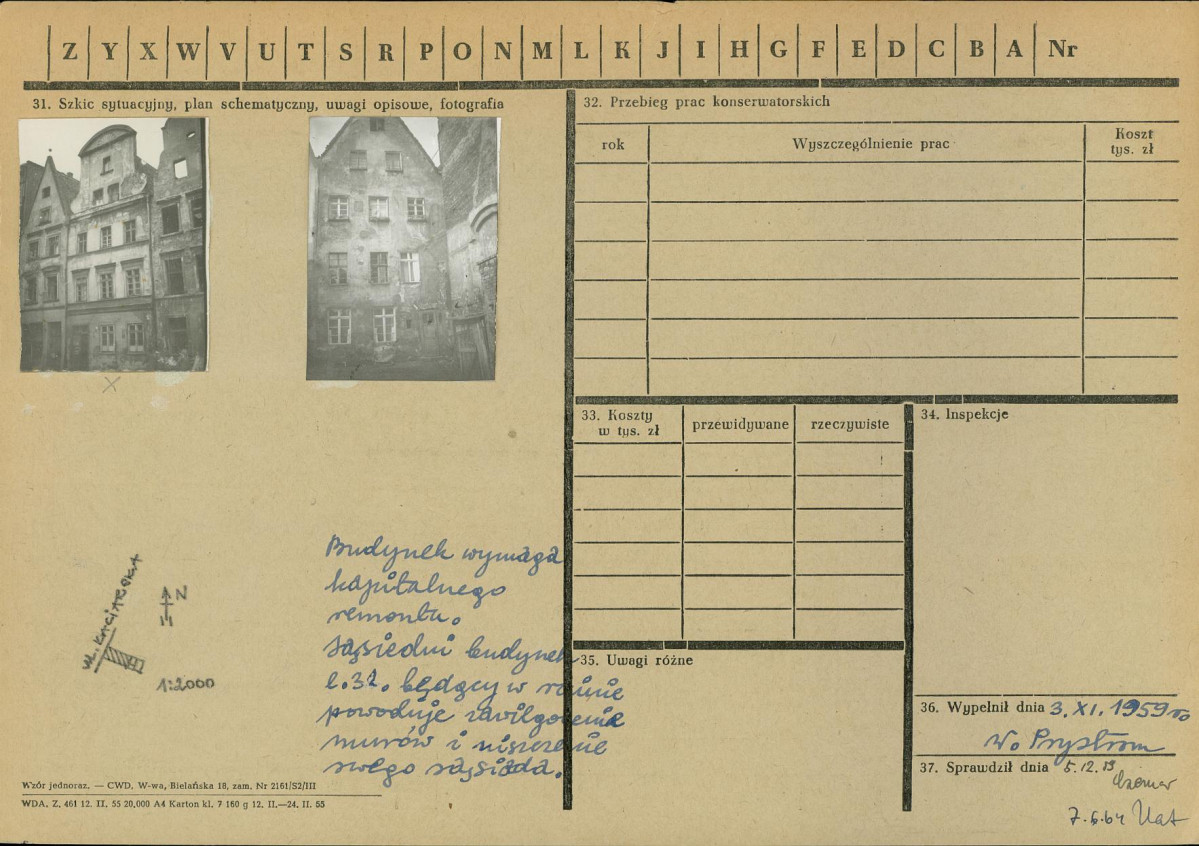 Z Y X W V U T S R P O N M L K J I H G F E D C B A Nr
31. Szkic sytuacyjny, plan schematyczny, uwagi opisowe, fotografia
X
Budynek wymaga
kapitalnego
remontu.
Sąsiedni budynek
l. 32. będący w ruinie
powoduje zawilgocenie
murów i niszczenie
swego sąsiada.
N
1:2000
Wzór jednoraz. — CWD, W-wa, Bielańska 18, zam. Nr 2161/S2/III
WDA. Z. 461 12. II. 55 20,000 A4 Karton kl. 7 160 g 12. II.—24. II. 55
32. Przebieg prac konserwatorskich
rok
Wyszczególnienie prac
Koszt
tys. zł
33. Koszty
w tys. zł
przewidywane
rzeczywiste
34. Inspekcje
35. Uwagi różne
36. Wypełnił dnia 3. XI. 1959 r.
37. Sprawdził dnia 5.12.59
7.6.64